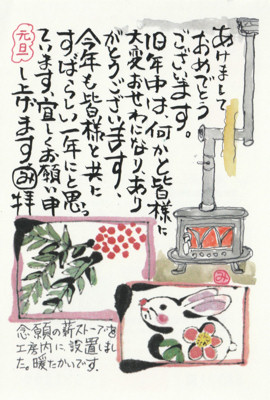 あけまして
おめでとう
ございます。
旧年中は、何かと皆様に
大変おせわになり、あり
がとうございます、
今年も皆様と共に
すばらしい一年にと思っ
ています、宜しくお願い申
し上げます 拝
元旦
念願の薪ストーブを
工房内に、設置しまし
た。暖たかいです。